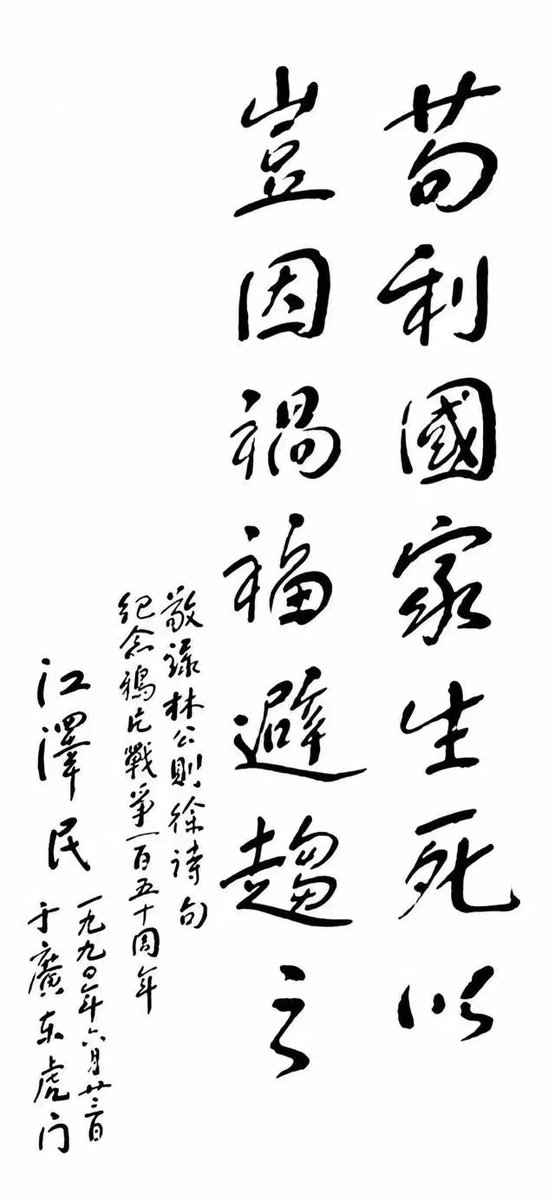 苟利國家生死以
豈因禍福避趋之
敬録林公則徐詩句
纪念鴉片戰爭一百五十周年
江澤民
一九九〇年六月廿三日
于廣东虎门